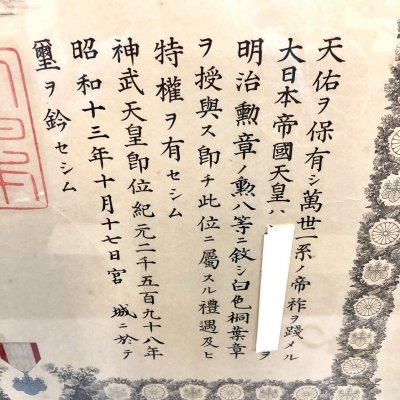 天佑ヲ保有シ萬世一系ノ帝祚ヲ踐メル
大日本帝國天皇ハ
ヲ
明治勲章ノ勲八等ニ敘シ白色桐葉章
ヲ授與ス即チ此位ニ屬スル禮遇及ヒ
特權ヲ有セシム
神武天皇即位紀元二千五百九十八年
昭和十三年十月十七日宮城ニ於テ
璽ヲ鈐セシム